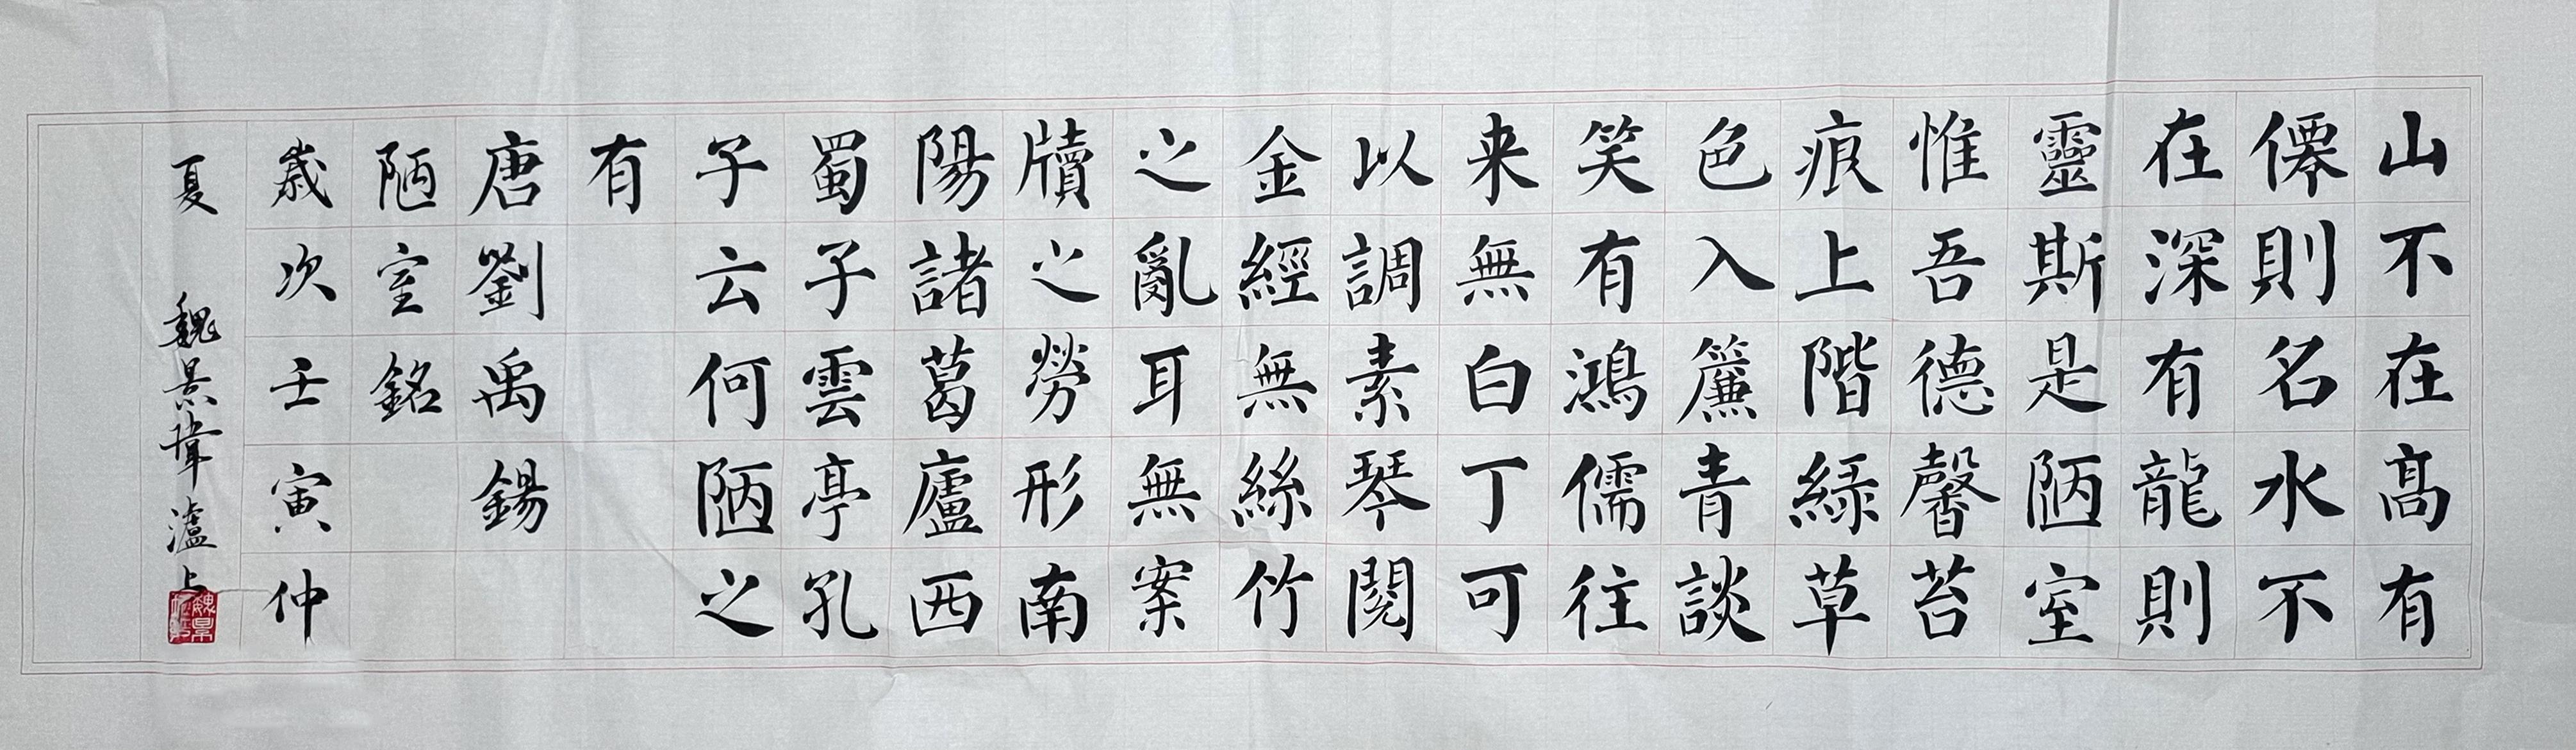 山不在高有
僊則名水不
在深有龍則
靈斯是陋室
惟吾德馨苔
痕上階緑草
色入簾青談
笑有鴻儒往
来無白丁可
以調素琴閱
金經無絲竹
之亂耳無案
牘之勞形南
陽諸葛廬西
蜀子雲亭孔
子云何陋之
有
唐劉禹錫
陋室銘
歲次壬寅仲
夏 魏景韋瀘上